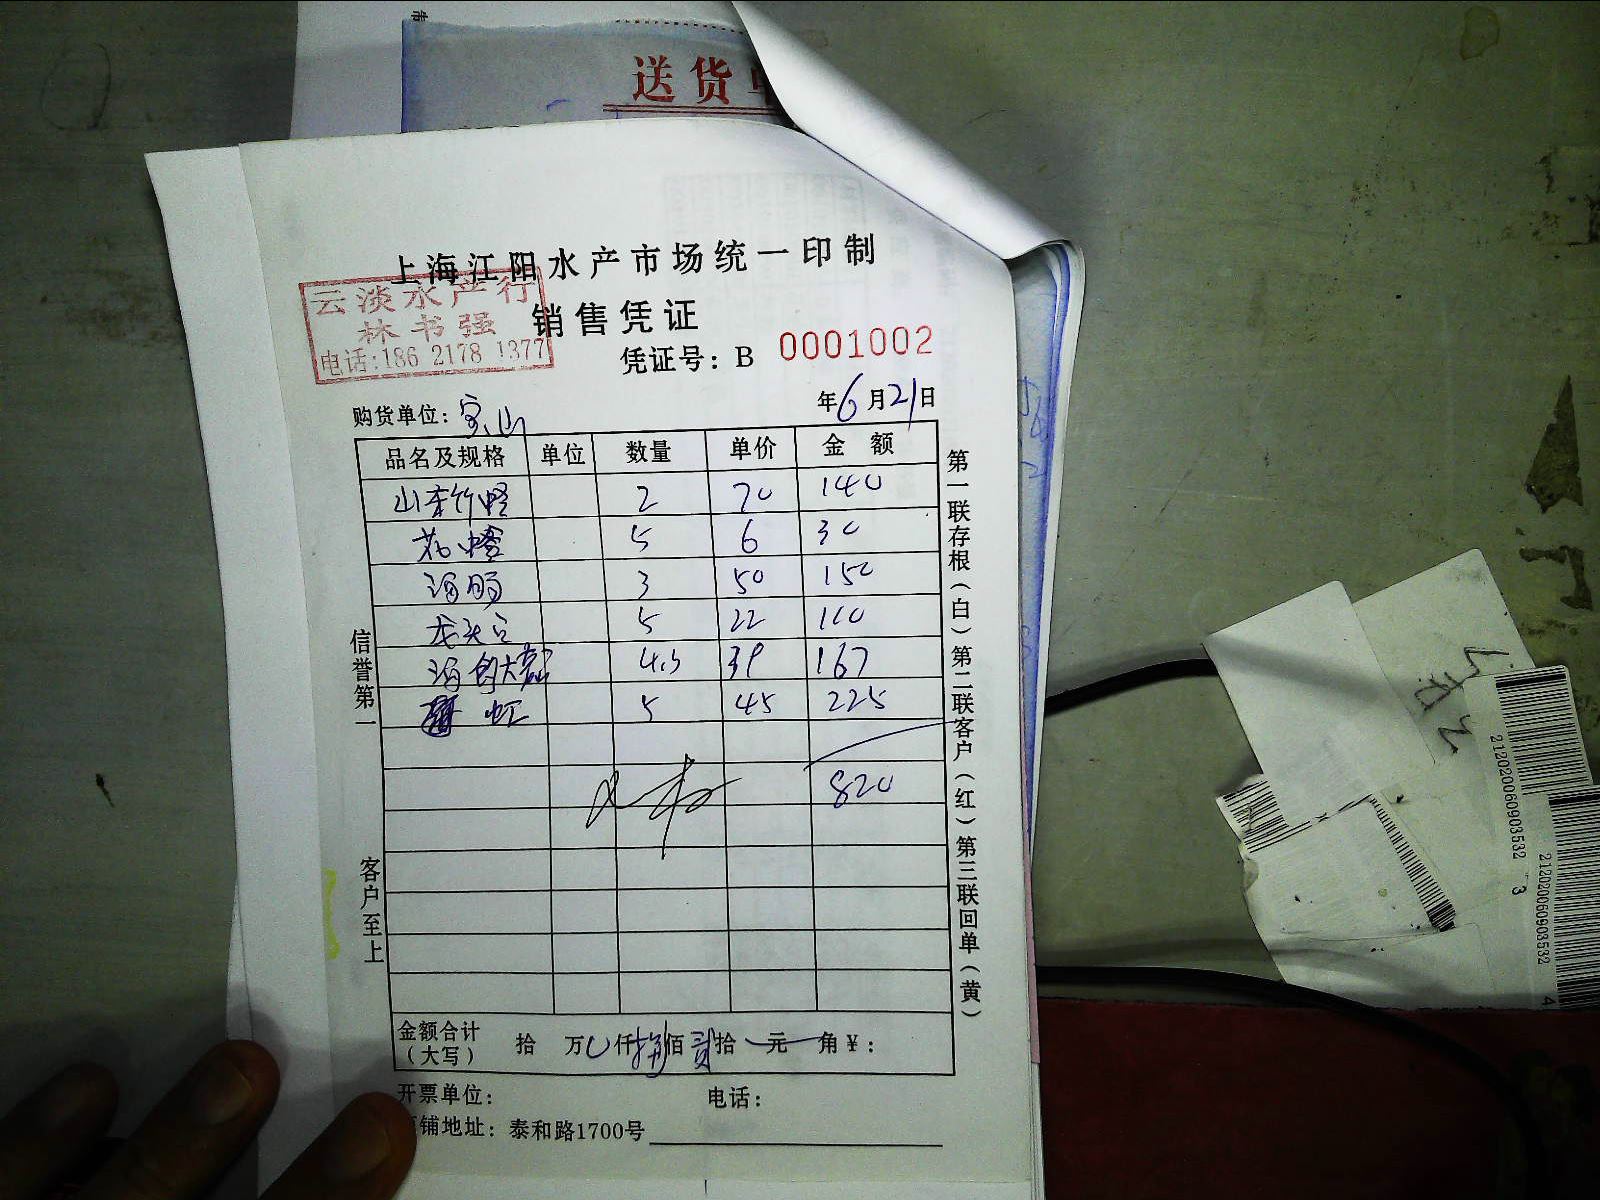 送货单
上海江阳水产市场统一印制
云淡水产行
林书强
电话:186 2178 1377
销售凭证
凭证号：B 0001002
购货单位：宝山 年6月21日
品名及规格 单位 数量 单价 金额
山东竹蛏 2 70 140
花蛤 5 6 30
海肠 3 50 150
龙头 5 22 110
海 大 4.3 39 167
虹 5 45 225
820
金额合计（大写） 拾 万 仟 捌 佰 贰 拾 元 角￥：
开票单位： 电话：
铺地址：泰和路1700号
信誉第一
客户至上
第一联存根（白）第二联客户（红）第三联回单（黄）
212020060903532 3
212020060903532 4